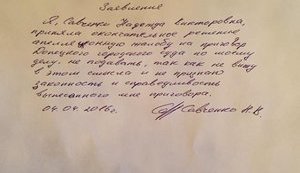 Заявление
Я, Савченко Надежда Викторовна,
приняла окончательное решение
апелляционную жалобу на приговор
Донецкого городского суда по моему
делу, не подавать, так как не вижу
в этом смысла и не признаю
законность и справедливость
вынесенного мне приговора.
04.04.2016г. Савченко Н.В.